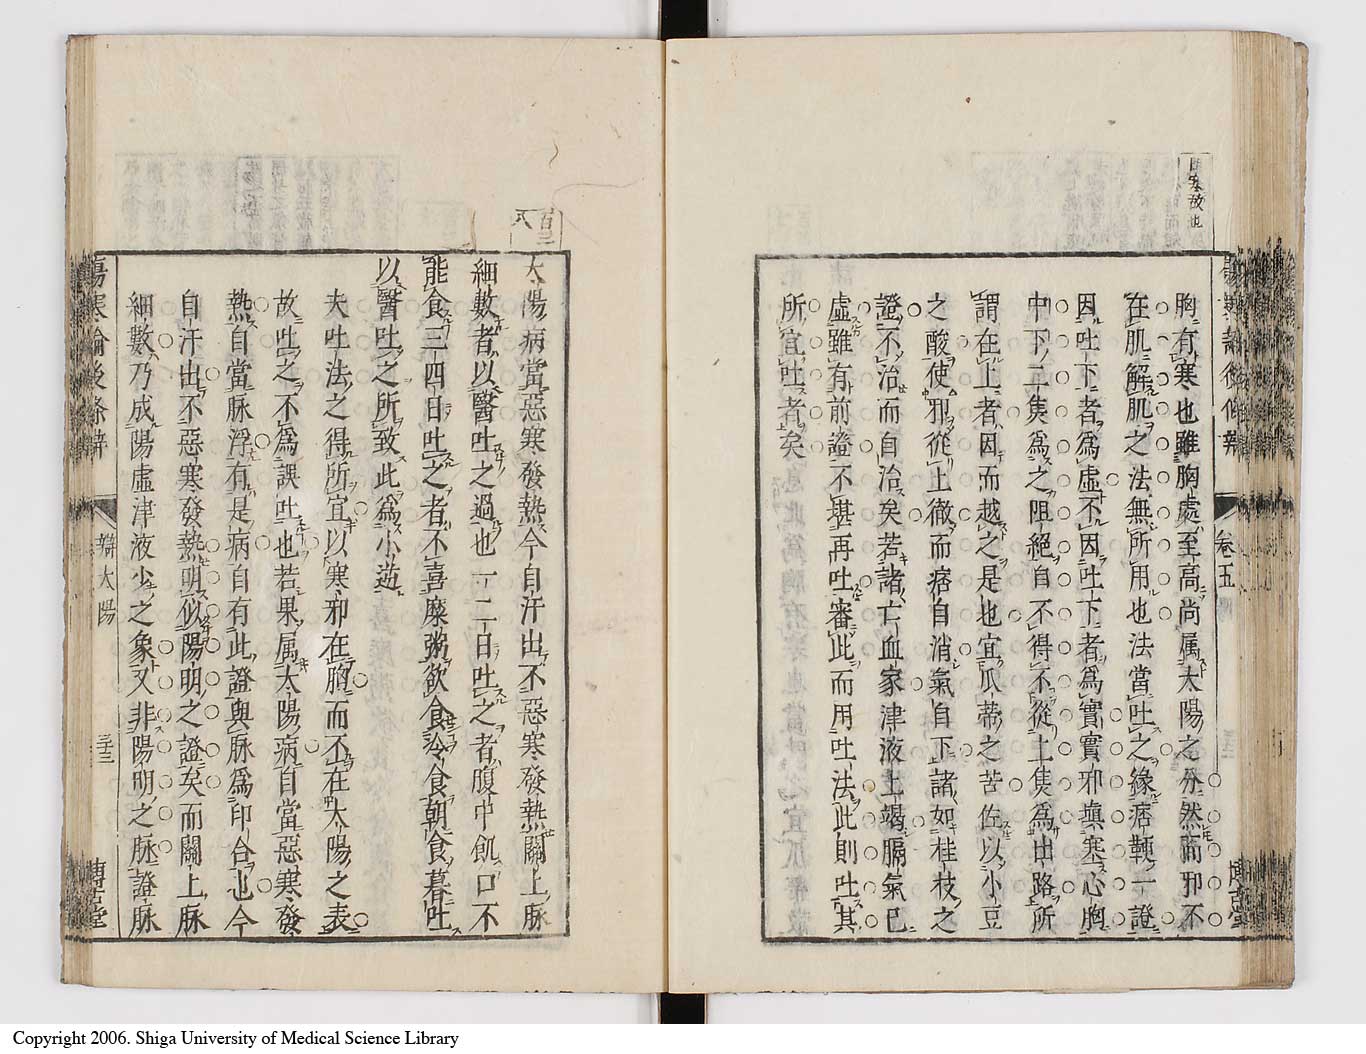 寒故也
胸有寒也雖胸處至高尚属太陽之分然而邪不
在肌解肌之法無所用也法當吐之緣痞鞕一證
因吐下者爲虛不因吐下者爲實實邪塡塞心胸
中下二焦爲之阻絕自不得不從上焦爲出路所
謂在上者因而越之是也宜瓜蒂之苦佐以小豆
之酸使邪從上徹而痞自消氣自下諸如桂枝之
證不治而自治矣若諸亡血家津液上竭膈氣已
虛雖有前證不堪再吐審此而用吐法此則吐其
所宜吐者矣
卷五
博古堂
百三
八
太陽病當惡寒發熱今自汗出不惡寒發熱關上脉
細數者以醫吐之過也一二日吐之者腹中飢口不
能食三四日吐之者不喜糜粥欲食冷食朝食暮吐
以醫吐之所致此爲小逆
夫吐法之得所宜以寒邪在胸而不在太陽之表
故吐之不爲誤吐也若果属太陽病自當惡寒發
熱自當脉浮有是病自有此證與脉爲印合也今
自汗出不惡寒發熱明似陽明之證矣而關上脉
細數乃成陽虛津液少之象又非陽明之脉證脉
傷寒論後條辨
辯太陽
三十三
博古堂
Copyright 2006. Shiga University of Medical Science Library